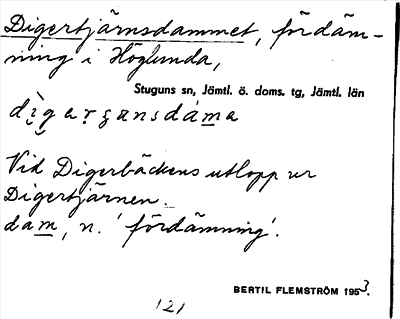 Digertjärnsdammet, fördäm-
ning i Höglunda,
Stuguns sn, Jämtl. ö. doms. tg, Jämtl. län
Vid Digerbäckens utlopp ur
Digertjärnen.
dam, n. 'fördämning'.
BERTIL FLEMSTRÖM 1953.
121